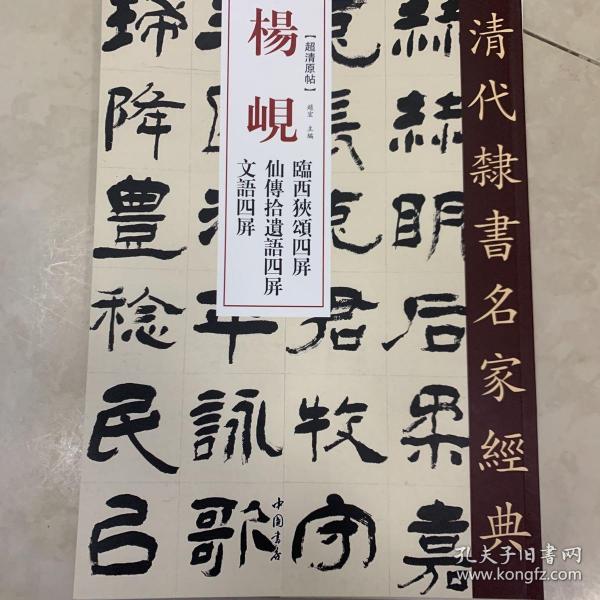 清代隸書名家經典
【超清原帖】
楊峴
趙宏 主編
臨西狹頌四屏
仙傳拾遺語四屏
文語四屏
赫赫明后柔嘉
克長克君牧守
清平詠歌
瑞降豐稔民以
中国書店
孔夫子旧书网
www.kongfz.com